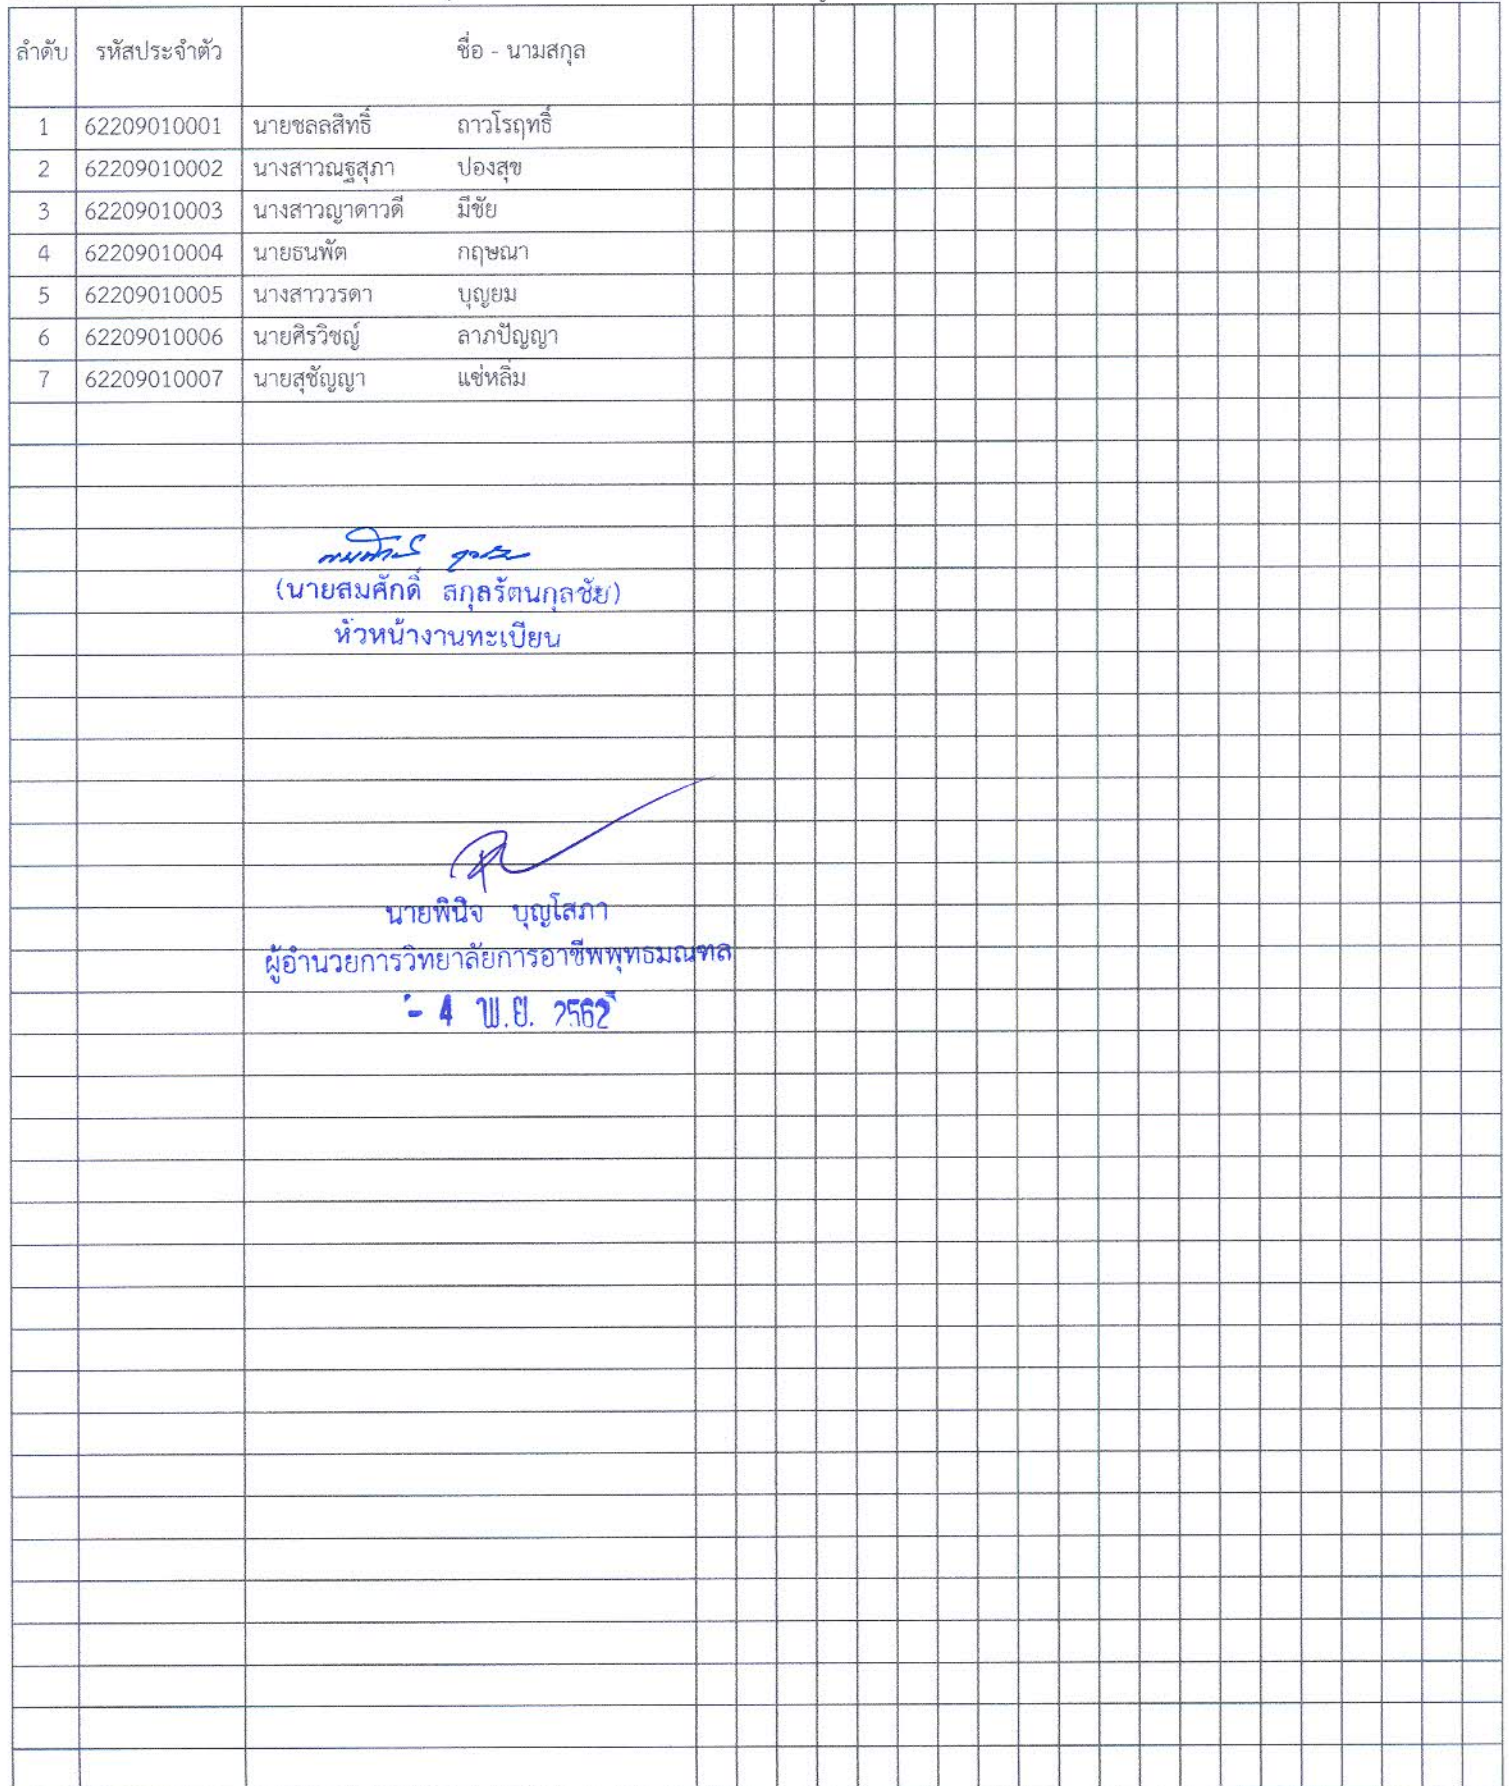 ลำดับ รหัสประจำตัว ชื่อ - นามสกุล
1 62209010001 นายชลลสิทธิ์ ถาวโรฤทธิ์
2 62209010002 นางสาวณฐสุภา ปองสุข
3 62209010003 นางสาวญาดาวดี มีชัย
4 62209010004 นายธนพัต กฤษณา
5 62209010005 นางสาววรดา บุญยม
6 62209010006 นายศิรวิชญ์ ลาภปัญญา
7 62209010007 นายสุชัญญา แซ่หลิ่ม
(นายสมศักดิ์ สกุลรัตนกุลชัย)
หัวหน้างานทะเบียน
นายพินิจ บุญโสภา
ผู้อำนวยการวิทยาลัยการอาชีพพุทธมณฑล
- 4 พ.ย. 2562